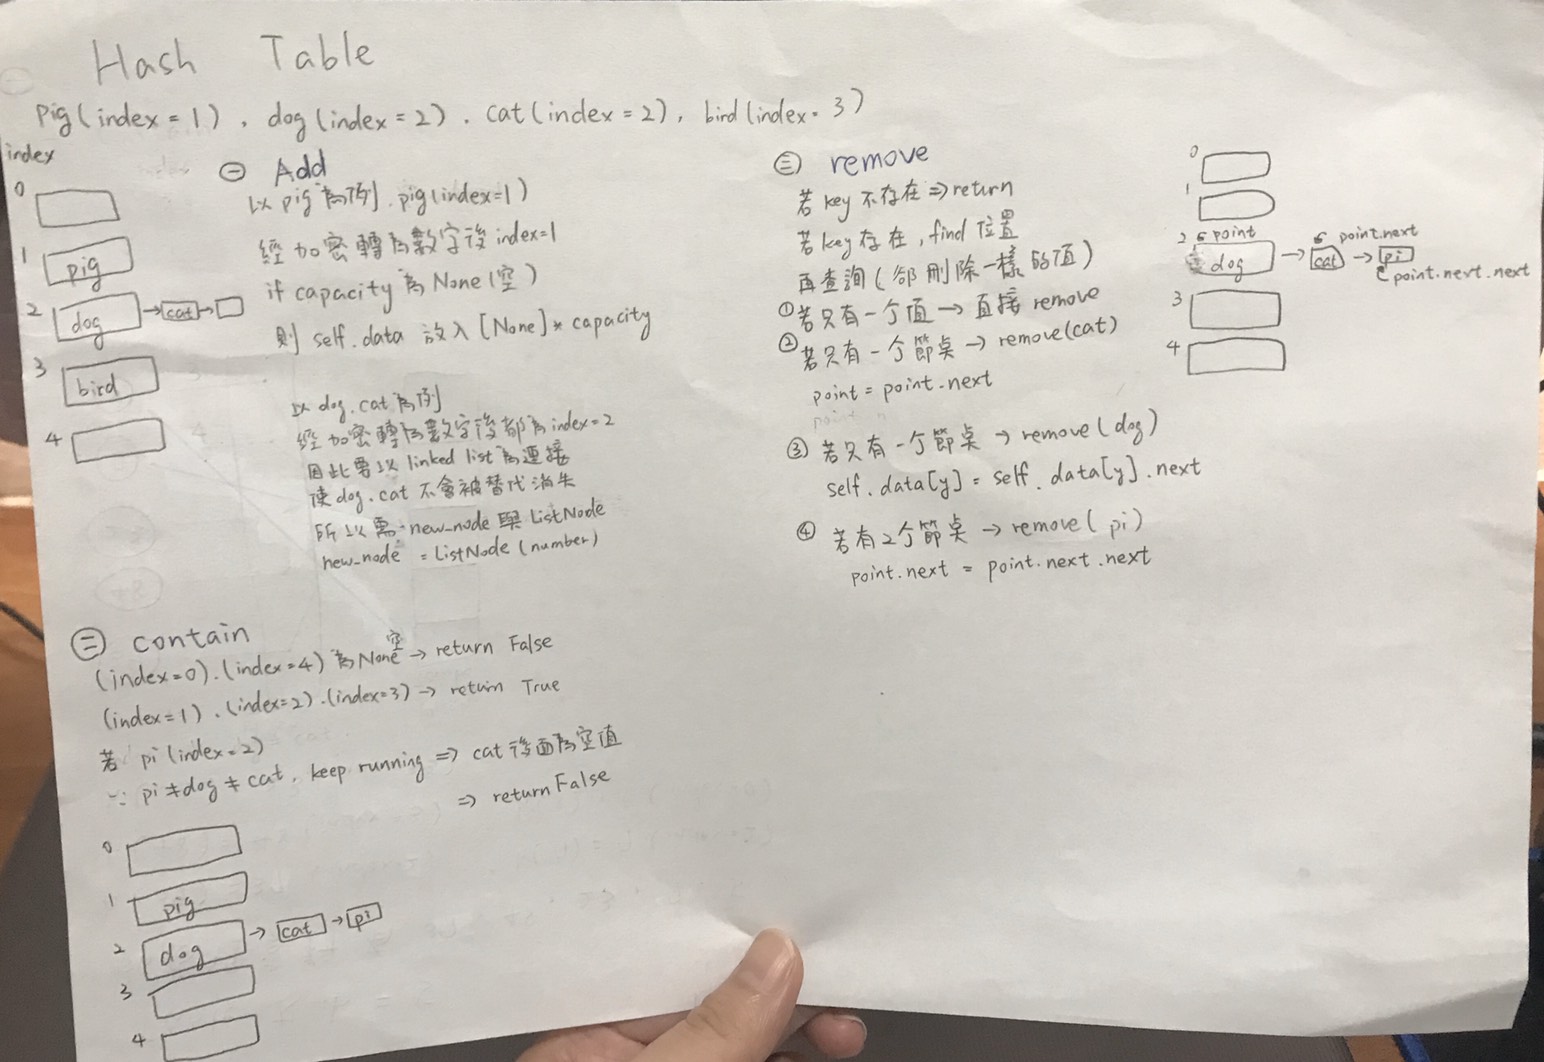 Hash Table
pig(index=1)、dog(index=2)、cat(index=2), bird(index=3)
index
0
1 pig
2 dog → cat →
3 bird
4
㊀ Add
以pig為例,pig(index=1)
經加密轉為數字後index=1
if capacity為None(空)
則 self.data 放入 [None]*capacity
以dog.cat為例
經加密轉為數字後都為index=2
因此要以linked list為連接
使dog.cat不會被替代消失
所以需:new_node與ListNode
new_node = ListNode(number)
㊁ contain
(index=0).(index=4)為None空→ return False
(index=1)、(index=2).(index=3)→ return True
若 pi(index=2)
∵ pi≠dog≠cat, keep running ⇒ cat後面為空值
⇒ return False
0
1 pig
2 dog → cat → pi
3
4
㊂ remove
若key不存在⇒return
若key存在,find位置
再查詢(卻刪除一樣的值)
①若只有一个值→直接remove
②若只有一个節桌→remove(cat)
point = point.next
③ 若只有一个節桌→ remove(dog)
self.data[y] = self.data[y].next
④ 若有2个節桌→ remove(pi)
point.next = point.next.next
0
1
2 point point.next
dog → cat → pi
point.next.next
3
4